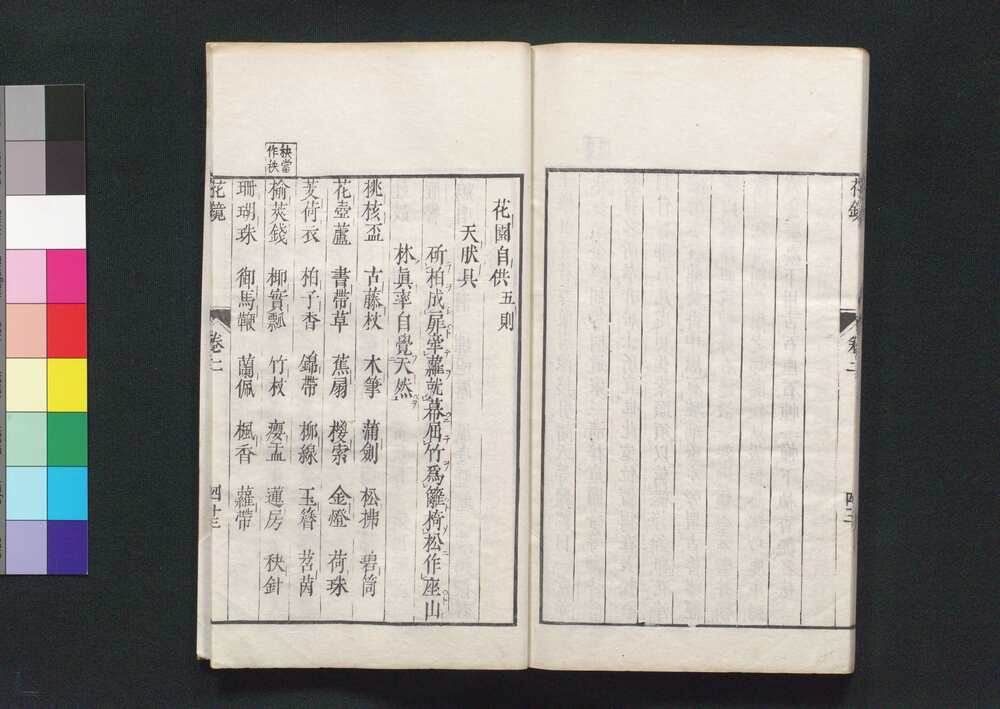 花鏡
卷二
花園自供五則
天肰具
斫柏成扉牽蘿就幕屈竹爲籬椅松作座山
林眞率自覺天然
桃核盃 古藤杖 木筆 蒲劍 松拂 碧筒
花壺蘆 書帶草 蕉扇 椶索 金燈 荷珠
芰荷衣 柏子香 錦帶 柳線 玉簪 苕茵
當
作
榆莢錢 椰實瓢 竹杖 癭盂 蓮房 秧針
珊瑚珠 御馬鞭 蘭佩 楓香 蘿帶
花鏡 卷二 四十三